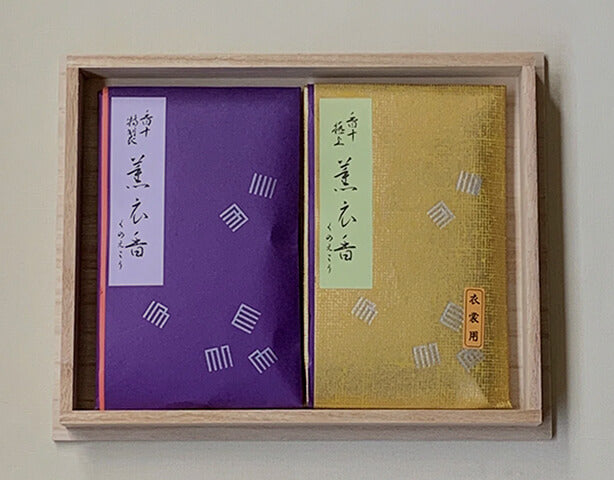 香十
特製
薫衣香
くのえこう
香十
極上
薫衣香
くのえこう
衣裳用